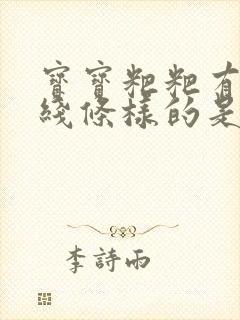 寶寶粑粑有
綫條樣的是
李詩雨